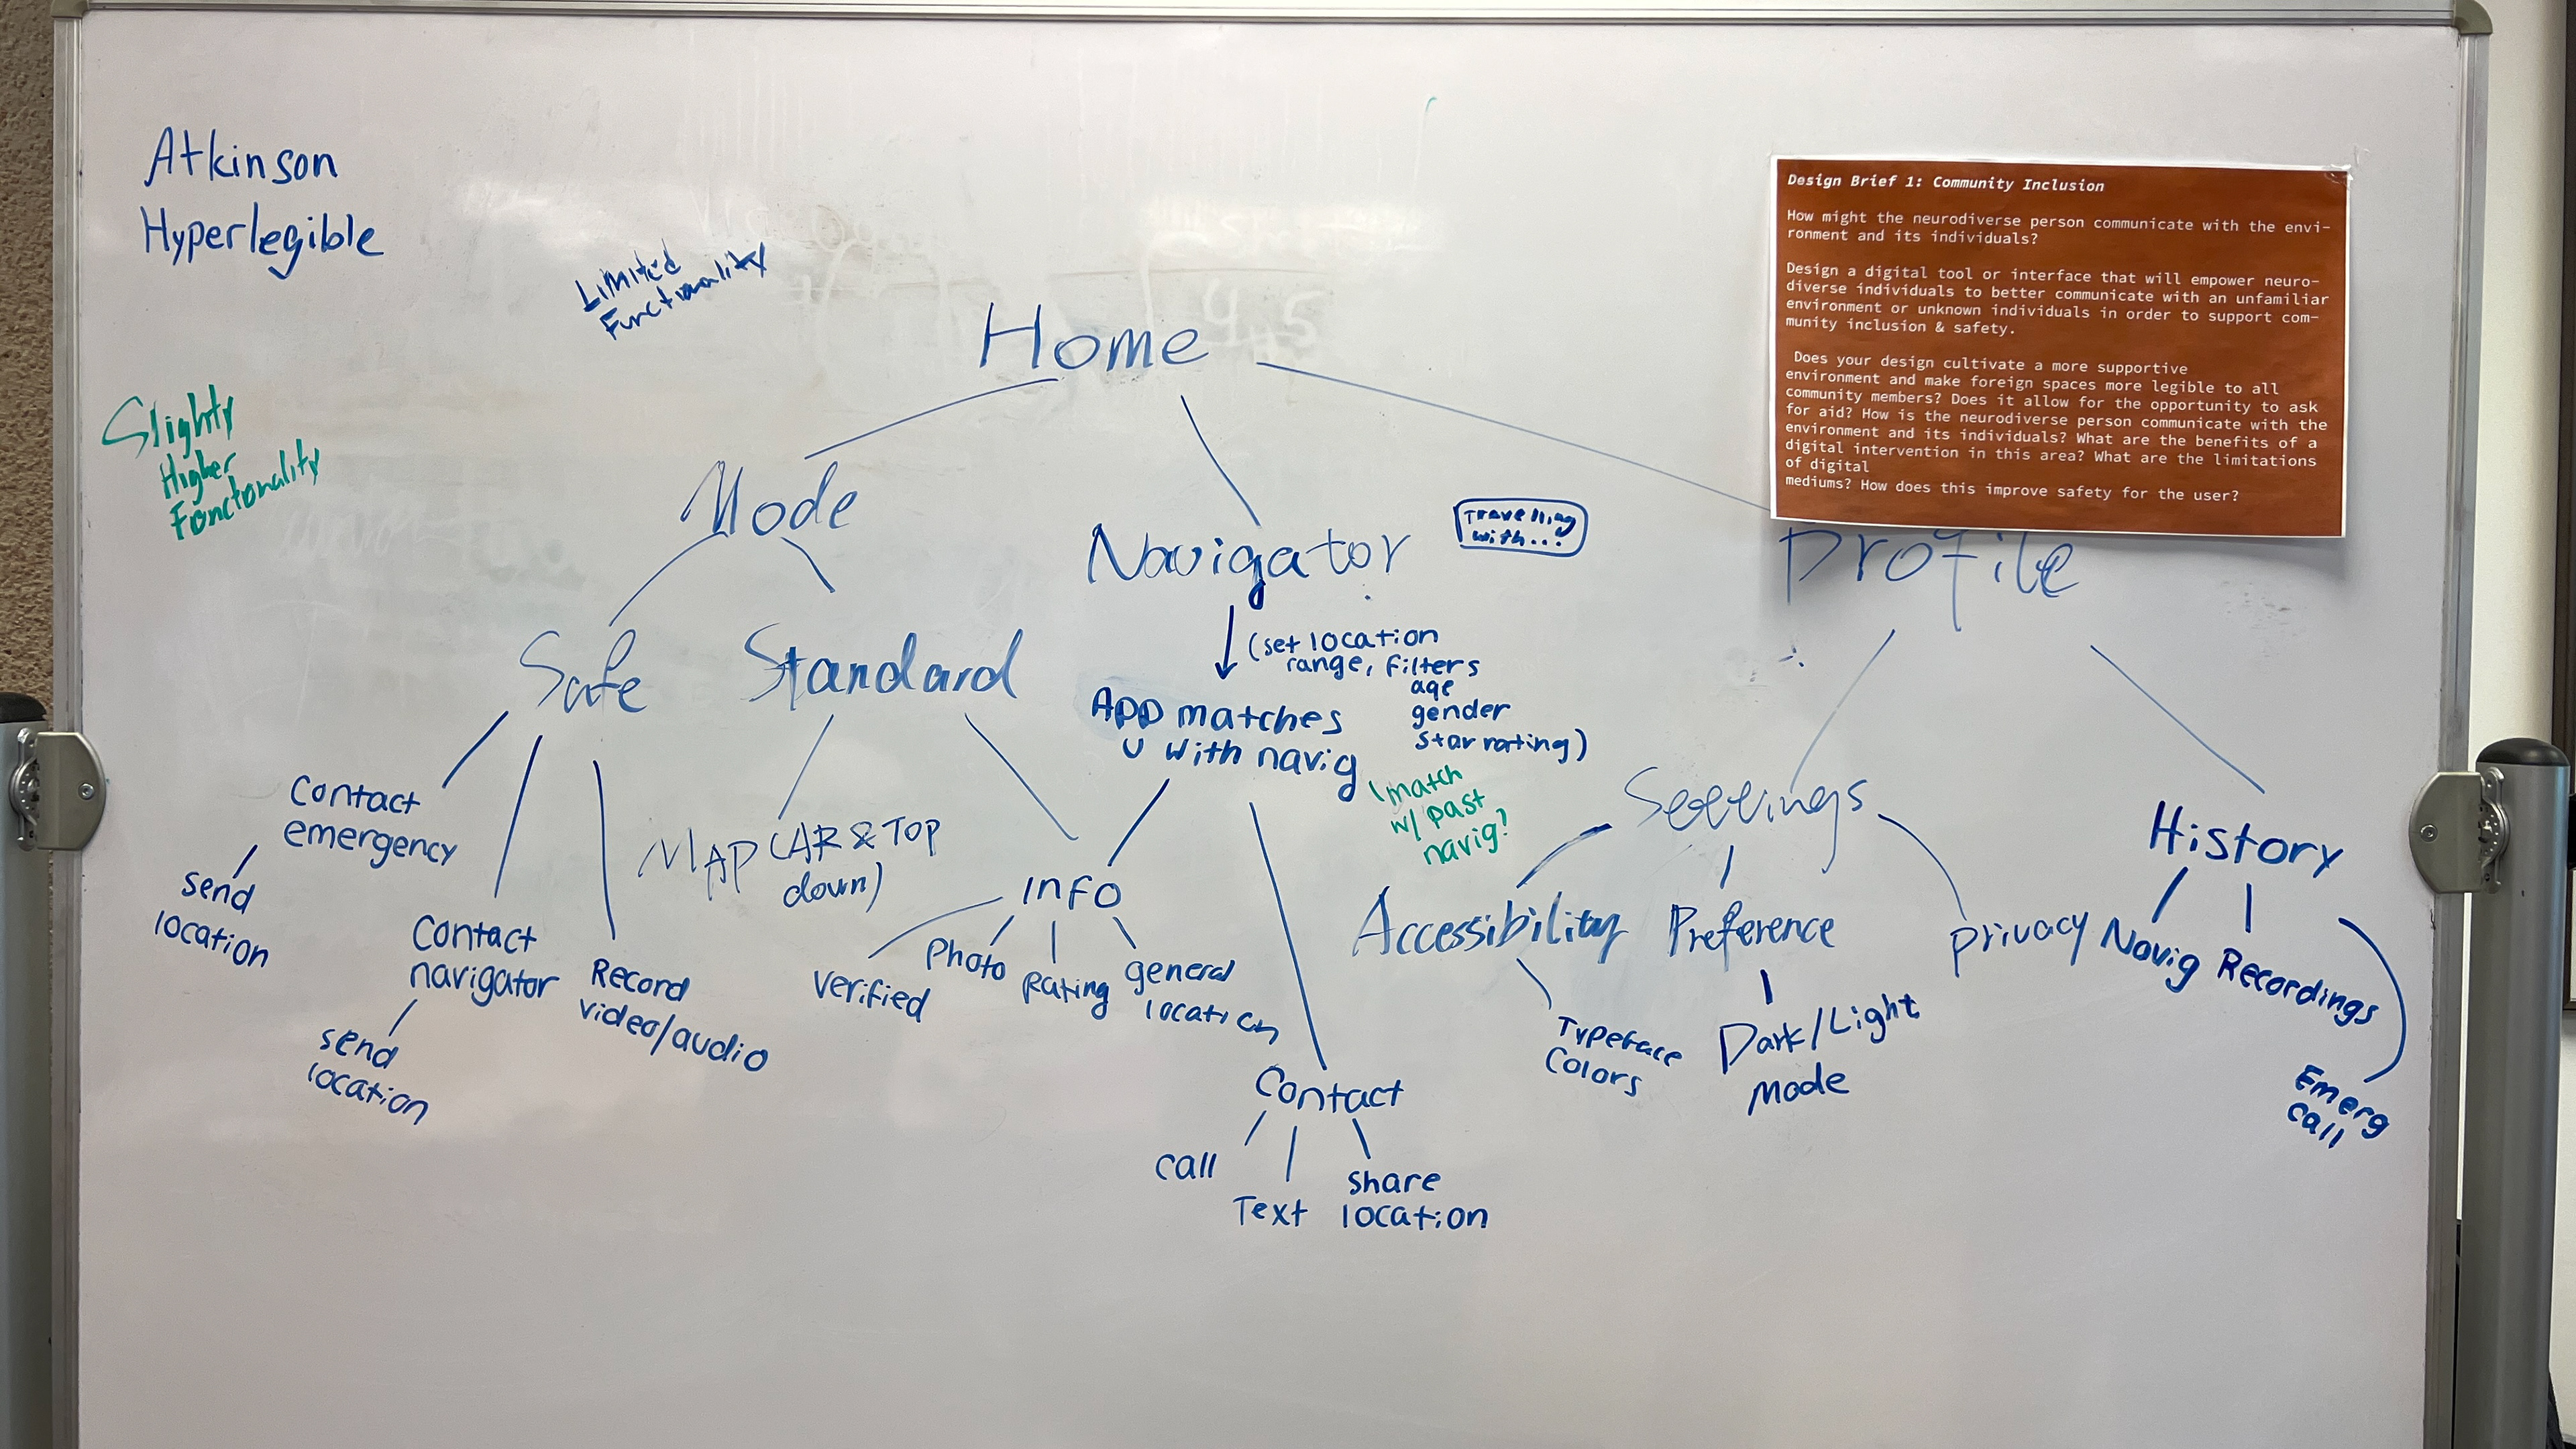 Atkinson
Hyperlegible
Limited
Functionality
Slighty
Higher
Fonctionality
Design Brief 1: Community Inclusion
How might the neurodiverse person communicate with the envi-
ronment and its individuals?
Design a digital tool or interface that will empower neuro-
diverse individuals to better communicate with an unfamiliar
environment or unknown individuals in order to support com-
munity inclusion & safety.
Does your design cultivate a more supportive
environment and make foreign spaces more legible to all
community members? Does it allow for the opportunity to ask
for aid? How is the neurodiverse person communicate with the
environment and its individuals? What are the benefits of a
digital intervention in this area? What are the limitations
of digital
mediums? How does this improve safety for the user?
Home
Mode
Navigator
Travelling
with...
Profile
Safe
Standard
(set location
range, filters
age
gender
star rating)
App matches
U with navig
(match
w/ past
navig?
Settings
History
Contact
emergency
send
location
Contact
navigator
send
location
Record
video/audio
MAP (AR & TOP
down)
INFO
Verified
Photo
Rating
general
location
Contact
call
Text
share
location
Accessibility
Typeface
Colors
Preference
Dark/Light
mode
privacy
Navig
Recordings
Emerg
call